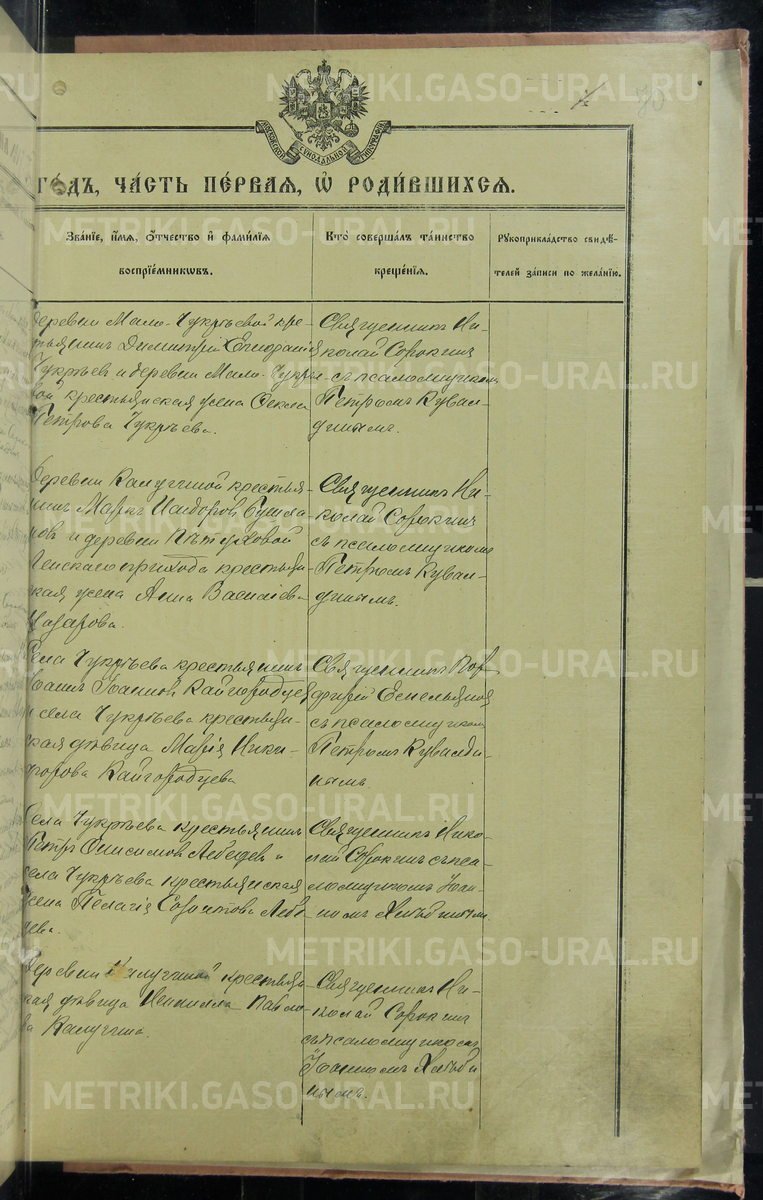 70
МОСКОВСКОЙ СѴНОДАЛЬНОЙ ТИПОГРАФІИ
ГОДЪ, ЧАСТЬ ПЕРВАЯ, Ѡ РОДИВШИХСЯ.
Званіе, имя, отчество и фамилія
воспріемникѡвъ.
Кто совершалъ таинство
крещенія.
Рукоприкладство свидѣ-
телей записи по желанію.
деревни Мало-Чукрѣевой кре-
стьянинъ Димитрій
Чукрѣевъ и деревни Мало-Чукрѣ-
вой крестьянская жена Фекла
Петрова Чукрѣева.
Священникъ Ни-
колай Сорокинъ
съ псаломщикомъ
Петромъ Кувал-
динымъ.
Деревни Калугиной крестья-
нинъ Маркъ Исидоровъ
и деревни
прихода крестьян-
ская жена Анна Васильева
Назарова.
Священникъ Ни-
колай Сорокинъ
съ псаломщикомъ
Петромъ Кувал-
динымъ.
Села Чукрѣева крестьянинъ
Іоаннъ Іоанновъ Кайгородцевъ
и села Чукрѣева крестьян-
ская дѣвица Марія Ники-
форова Кайгородцева
Священникъ Пор-
фирій Емельяновъ
съ псаломщикомъ
Петромъ Кувалди-
нымъ.
Села Чукрѣева крестьянинъ
Петръ Онисимовъ Лебедевъ и
села Чукрѣева крестьянская
жена Пелагія Лебе-
дева.
Священникъ Нико-
лай Сорокинъ съ пса-
ломщикомъ Іоан-
номъ
Деревни Калугиной крестьян-
ская дѣвица Неонилла Павло-
ва Калугина.
Священникъ Ни-
колай Сорокинъ
съ псаломщикомъ
Іоанномъ
нымъ.
METRIKI.GASO-URAL.RU